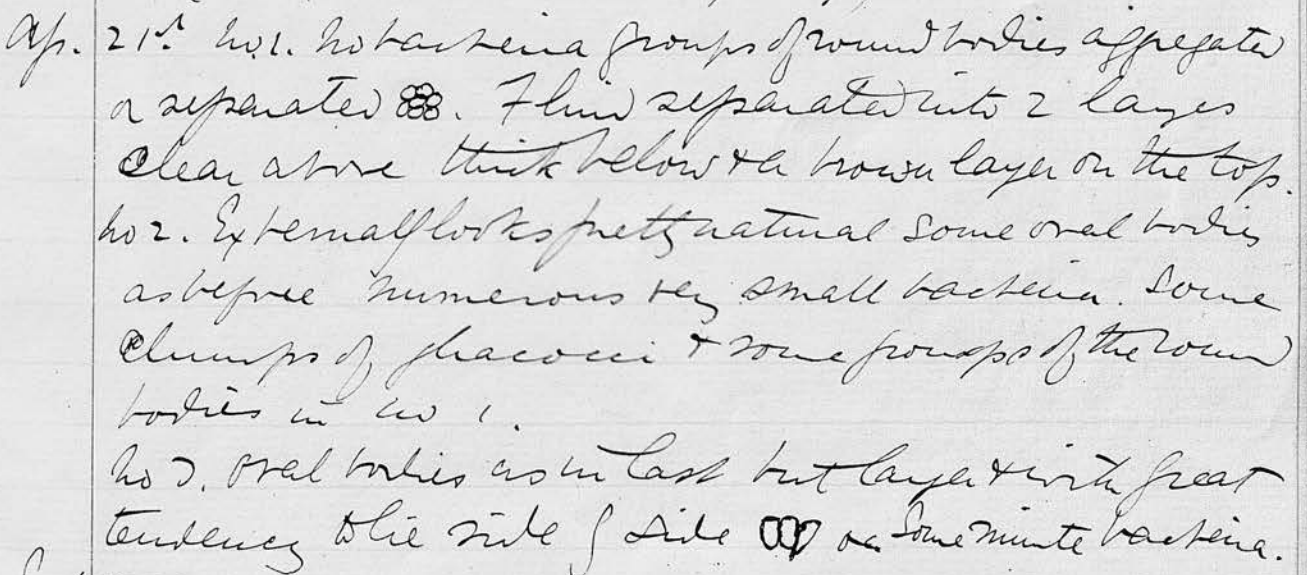 Ap. 21st. No 1. No bacteria groups of round bodies aggregated
or separated . Fluid separated into 2 layers
clear above thick below & a brown layer on the top.
No 2. Externally looks pretty natural Some oval bodies
as before numerous very small bacteria. Some
clumps of & some groups of the round
bodies in No 1.
No 3. Oval bodies as in last but larger & with great
tendency to lie side by side or Some minute bacteria.